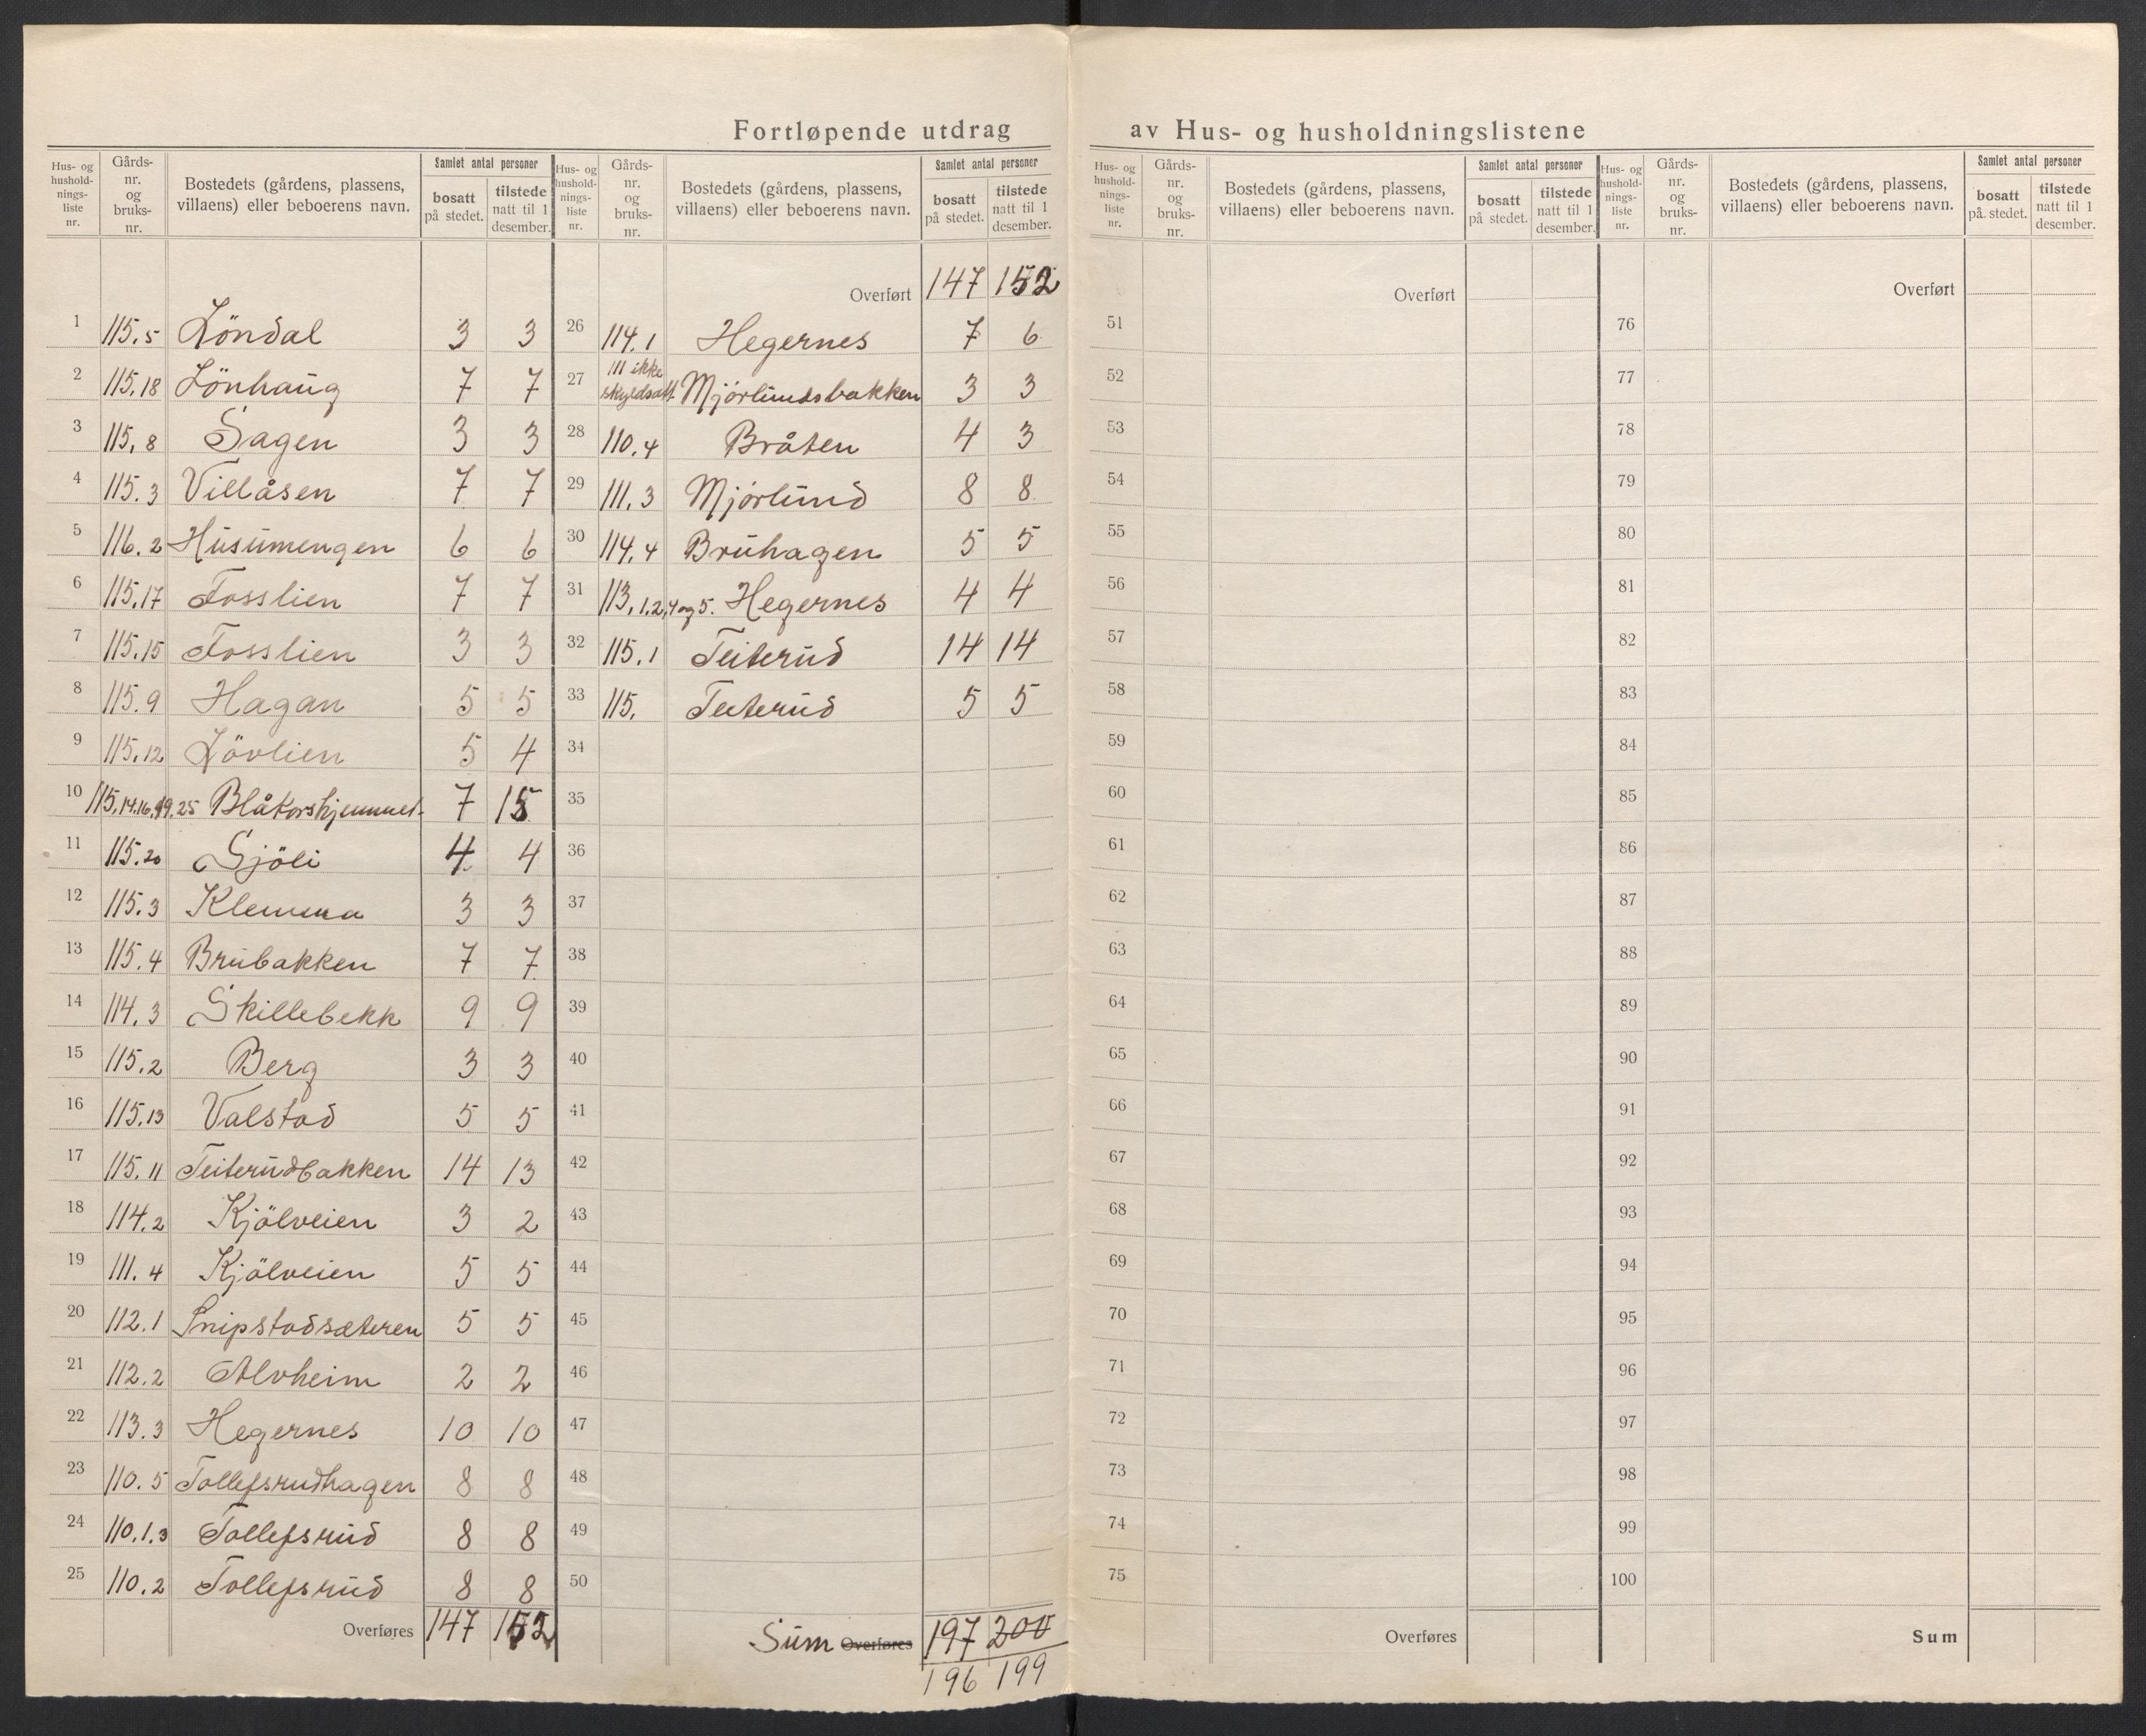 Fortløpende utdrag av Hus- og husholdningslistene
Hus- og hushold-nings-liste nr. Gårds-nr. og bruks-nr. Bostedets (gårdens, plassens, villaens) eller beboerens navn. Samlet antal personer bosatt på stedet. tilstede natt til 1 desember.
1 115.5 Löndal 3 3
2 115.18 Lönhaug 7 7
3 115.8 Sagen 3 3
4 115.3 Villåsen 7 7
5 116.2 Husumengen 6 6
6 115.17 Fosslien 7 7
7 115.15 Fosslien 3 3
8 115.9 Hagan 5 5
9 115.12 Lövlien 5 4
10 115.14.16.19.25 Blåkorshjemmet 7 15
11 115.20 Sjöli 4 4
12 115.3 Klemma 3 3
13 115.4 Brubakken 7 7
14 114.3 Skillebekk 9 9
15 115.2 Berg 3 3
16 115.13 Valstad 5 5
17 115.11 Teiterudbakken 14 13
18 114.2 Kjölveien 3 2
19 111.4 Kjölveien 5 5
20 112.1 Snipstadsæteren 5 5
21 112.2 Alvheim 2 2
22 113.3 Hegernes 10 10
23 110.5 Tollefsrudhagen 8 8
24 110.1.3 Tollefsrud 8 8
25 110.2 Tollefsrud 8 8
Overføres 147 152
Hus- og hushold-nings-liste nr. Gårds-nr. og bruks-nr. Bostedets (gårdens, plassens, villaens) eller beboerens navn. Samlet antal personer bosatt på stedet. tilstede natt til 1 desember.
Overført 147 152
26 114.1 Hegernes 7 6
27 111 ikke skyldsatt Mjörlundsbakken 3 3
28 110.4 Bråten 4 3
29 111.3 Mjörlund 8 8
30 114.4 Bruhagen 5 5
31 113,1.2,4 og 5. Hegernes 4 4
32 115.1 Teiterud 14 14
33 115. Teiterud 5 5
34
35
36
37
38
39
40
41
42
43
44
45
46
47
48
49
50
Sum Overføres 197 200
196 199
Hus- og hushold-nings-liste nr. Gårds-nr. og bruks-nr. Bostedets (gårdens, plassens, villaens) eller beboerens navn. Samlet antal personer bosatt på stedet. tilstede natt til 1 desember.
Overført
51
52
53
54
55
56
57
58
59
60
61
62
63
64
65
66
67
68
69
70
71
72
73
74
75
Overføres
Hus- og hushold-nings-liste nr. Gårds-nr. og bruks-nr. Bostedets (gårdens, plassens, villaens) eller beboerens navn. Samlet antal personer bosatt på stedet. tilstede natt til 1 desember.
Overført
76
77
78
79
80
81
82
83
84
85
86
87
88
89
90
91
92
93
94
95
96
97
98
99
100
Sum